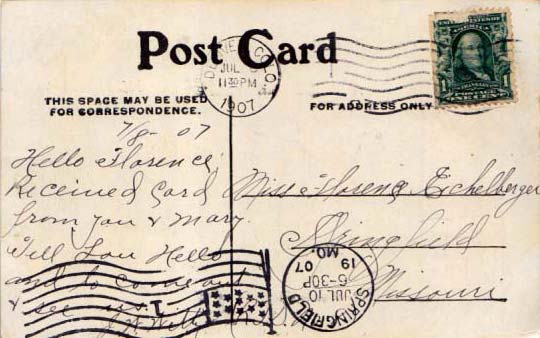 Post Card
JUL
11 30 PM
1907
THIS SPACE MAY BE USED
FOR CORRESPONDENCE.
FOR ADDRESS ONLY
7/8-07
Hello Florence
Received Card
from you & Mary.
Tell Lou Hello
and to come out
& see us.
Miss Florence Eichelberger
Springfield
Missouri
SPRINGFIELD
JUL 10
6-30P
19 07
MO.
1